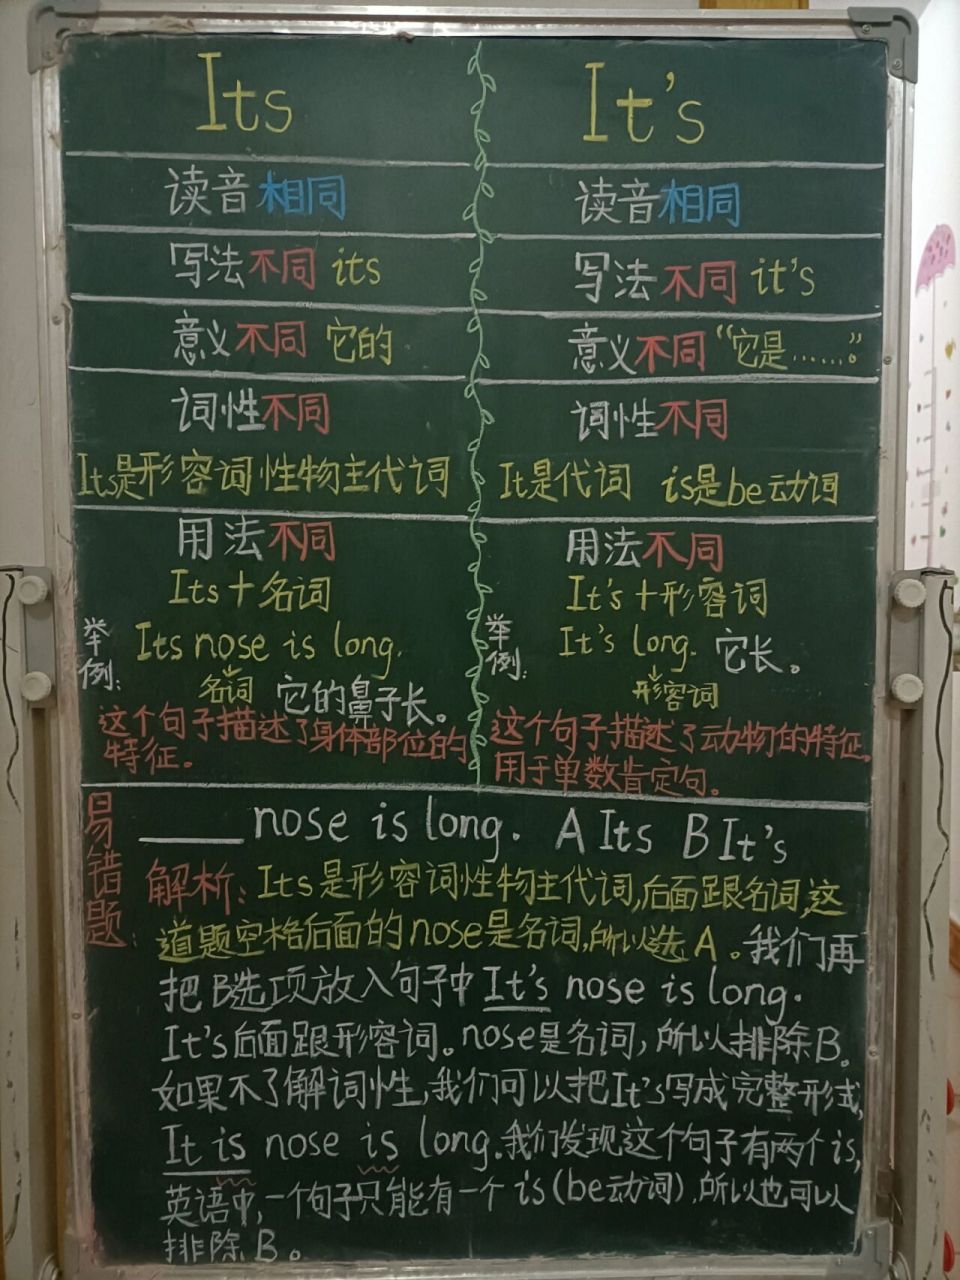 Its
读音相同
写法不同 its
意义不同 它的
词性不同
Its是形容词性物主代词
用法不同
Its+名词
举例: Its nose is long.
名词 它的鼻子长。
这个句子描述了身体部位的
特征。
It's
读音相同
写法不同 it's
意义不同“它是……”。
词性不同
It是代词 is是be动词
用法不同
It's+形容词
举例: It's long. 它长。
形容词
这个句子描述了动物的特征。
用于单数肯定句。
易错题: ____ nose is long. A Its B It's
解析: Its是形容词性物主代词,后面跟名词,这
道题空格后面的nose是名词,所以选A。我们再
把B选项放入句子中It's nose is long.
It's后面跟形容词。nose是名词,所以排除B。
如果不了解词性,我们可以把It's写成完整形式,
It is nose is long.我们发现这个句子有两个is,
英语中,一个句子只能有一个is(be动词),所以也可以
排除B。